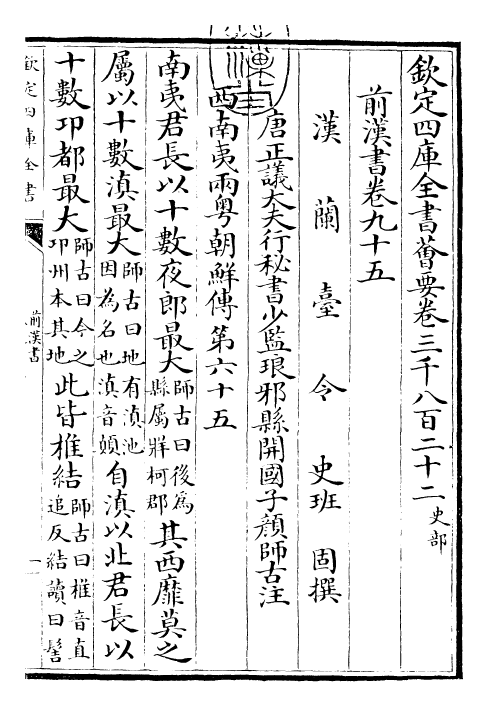 欽定四庫全書薈要卷三千八百二十二史部
前漢書卷九十五
漢蘭臺令史班固撰
唐正議大夫行秘書少監琅邪縣開國子顔師古注
西南夷兩粤朝鮮傳第六十五
南夷君長以十數夜郎最大師古曰後為縣屬牂柯郡其西靡莫之
屬以十數滇最大師古曰地有滇池因為名也滇音顛自滇以北君長以
十數邛都最大師古曰今之邛州本其地此皆椎結師古曰椎音直追反結讀曰髻
欽定四庫全書
前漢書
一